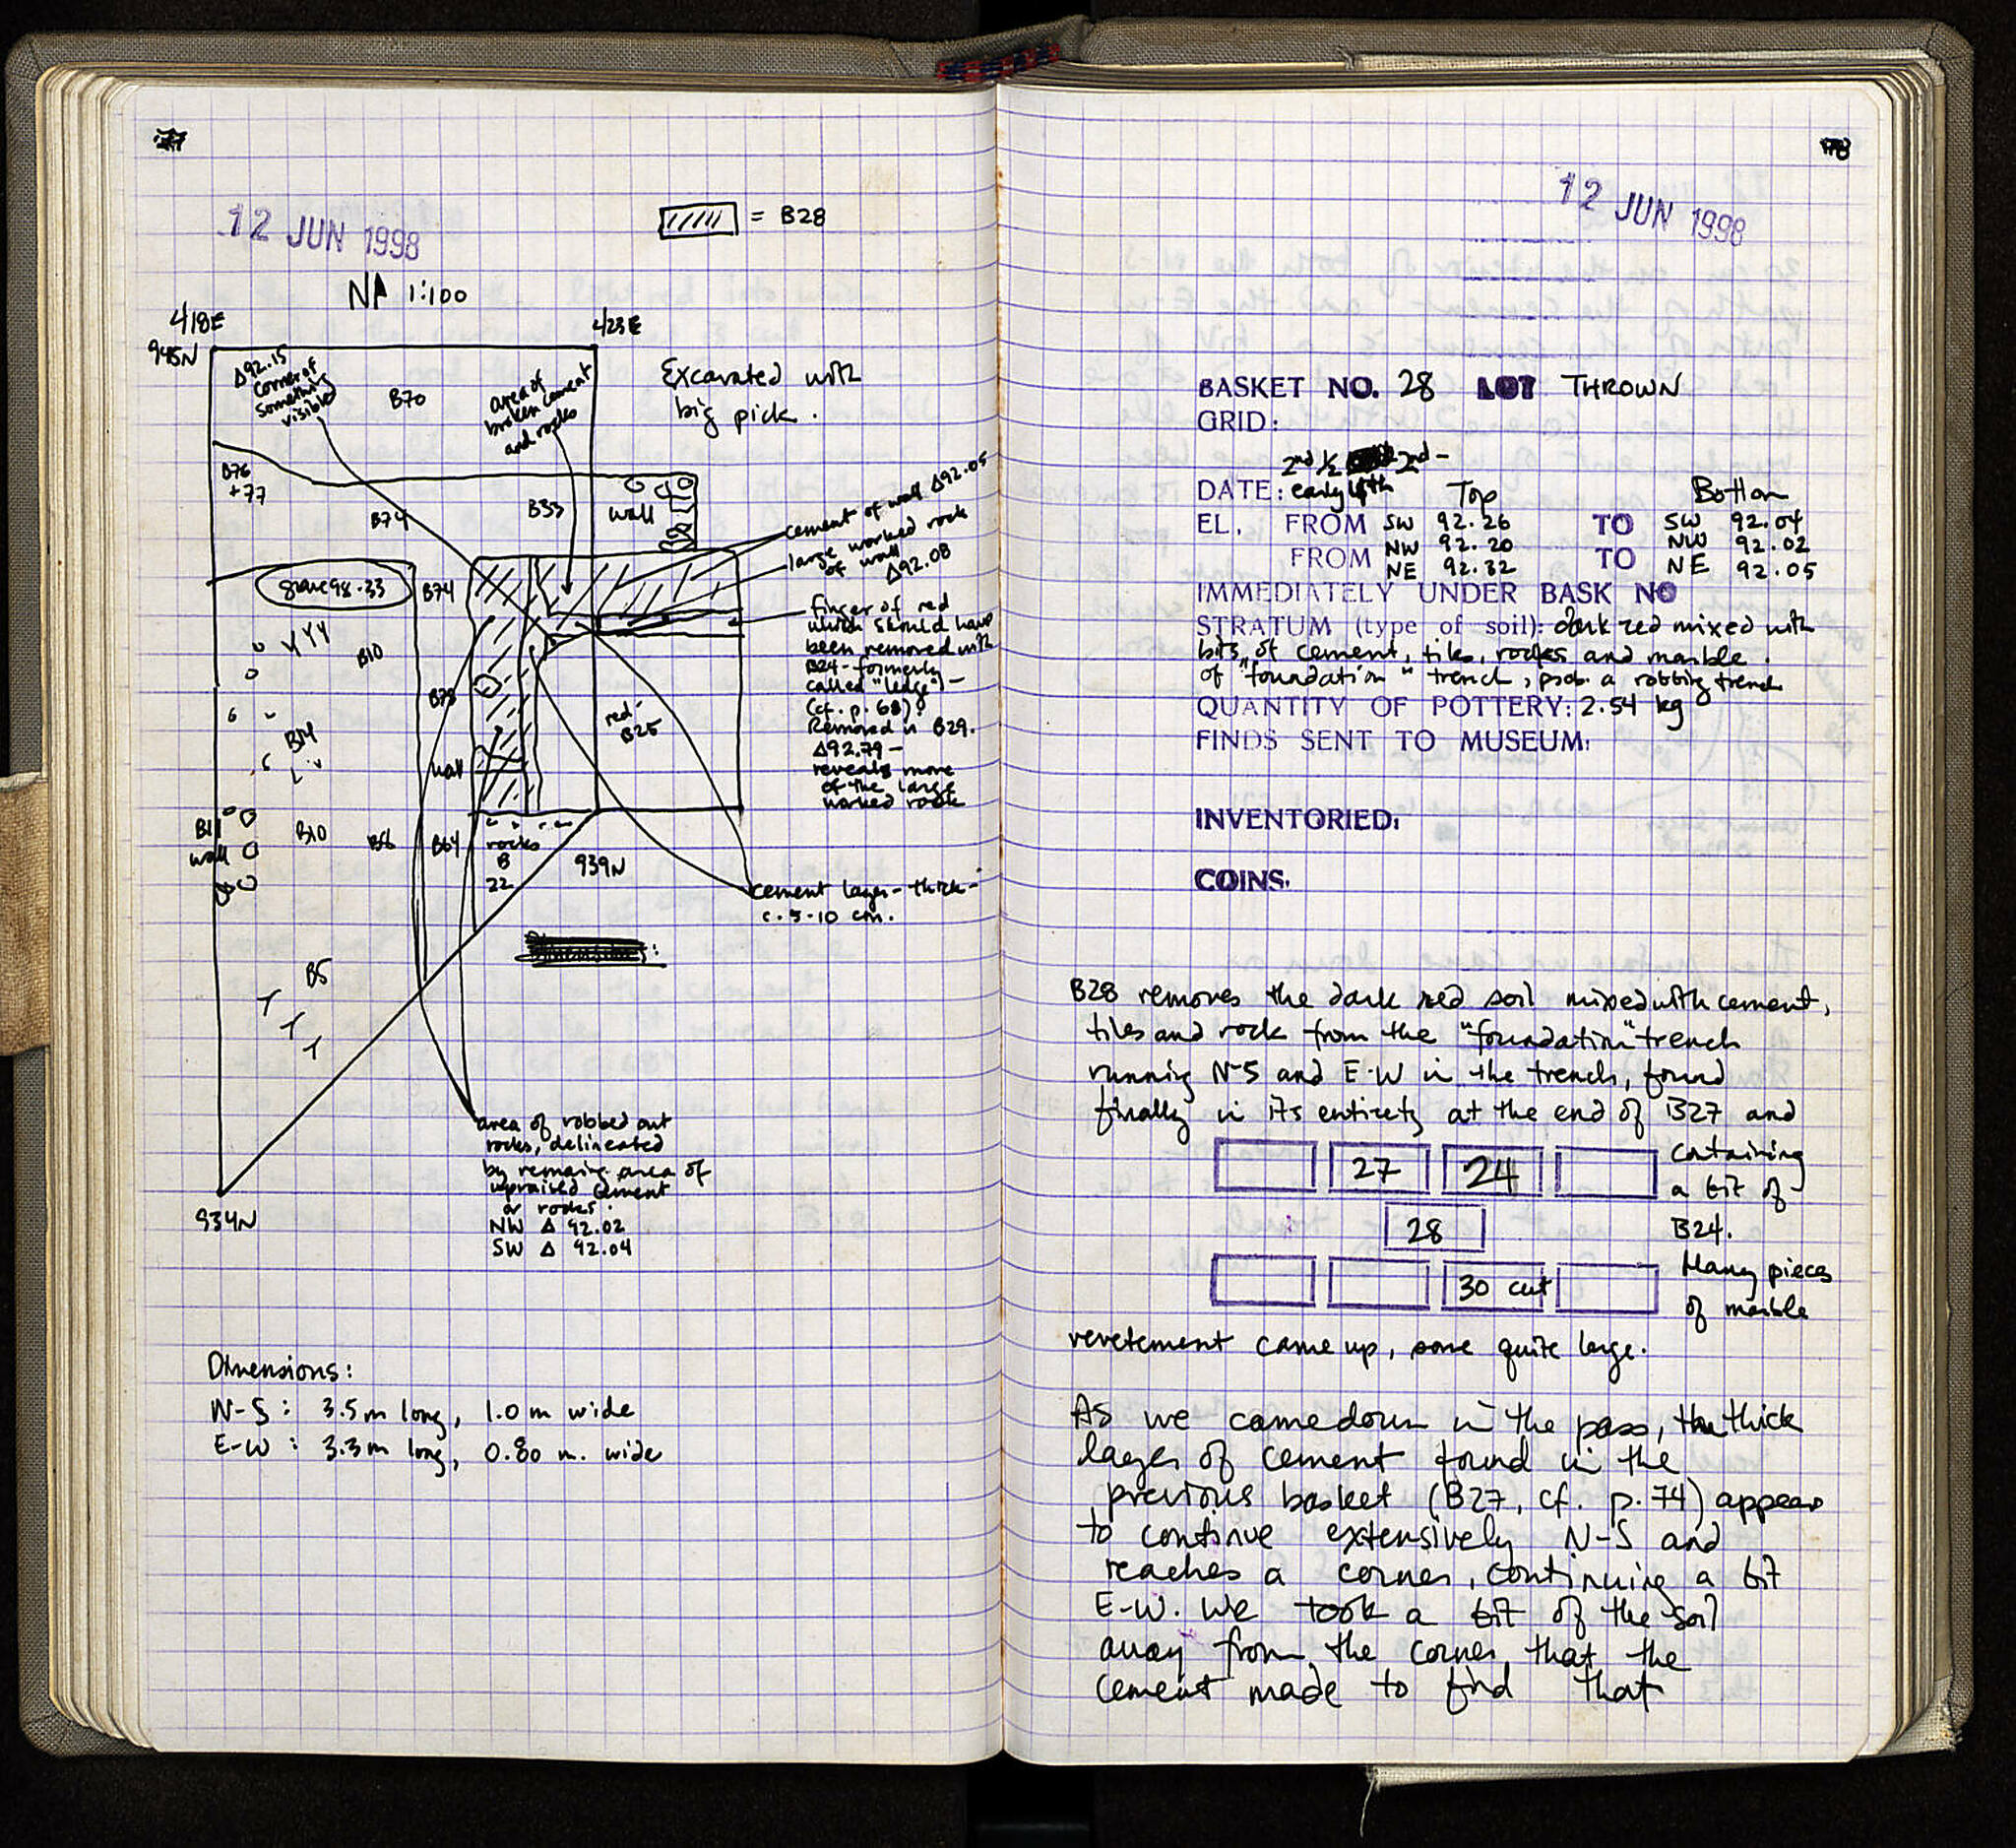 12 JUN 1998
= B28
N 1:100
418E
423E
945N
Δ92.15
corner of
something
visible
B70
area of
broken cement
and rocks
Excavated with
big pick.
B76
+77
B74
B33
wall
cement of wall Δ92.05
large worked rock
of wall
Δ92.08
grave 98-33
B74
finger of red
which should have
been removed with
B24 - formerly
called "ledge") -
(cf. p. 68)
Removed in B29.
Δ92.79 -
reveals more
of the large
worked rock
B10
B73
red-
B25
B14
wall
B11
wall
B10
B66
B64
rocks
B
22
939N
cement layer - thick -
c. 5-10 cm.
B5
area of robbed out
rocks, delineated
by remains area of
upraised cement
or rocks.
NW Δ 92.02
SW Δ 92.04
934N
Dimensions:
N-S: 3.5m long, 1.0 m wide
E-W: 3.3m long, 0.80 m. wide
12 JUN 1998
BASKET NO. 28 LOT THROWN
GRID:
2nd 1/2 2nd -
DATE: early 4th Top Bottom
EL. FROM SW 92.26 TO SW 92.04
NW 92.20 NW 92.02
FROM NE 92.32 TO NE 92.05
IMMEDIATELY UNDER BASK NO
STRATUM (type of soil): dark red mixed with
bits of cement, tiles, rocks and marble.
of "foundation" trench, prob. a robbing trench
QUANTITY OF POTTERY: 2.54 kg
FINDS SENT TO MUSEUM:
INVENTORIED:
COINS.
B28 removes the dark red soil mixed with cement,
tiles and rock from the "foundation" trench
running N-S and E-W in the trench, found
finally in its entirety at the end of B27 and
containing
27 24
a bit of
28
B24.
30 cut
Many pieces
of marble
revetement came up, some quite large.
As we came down in the pass, the thick
layer of cement found in the
previous basket (B27, cf. p. 74) appears
to continue extensively N-S and
reaches a corner, continuing a bit
E-W. We took a bit of the soil
away from the corner that the
cement made to find that